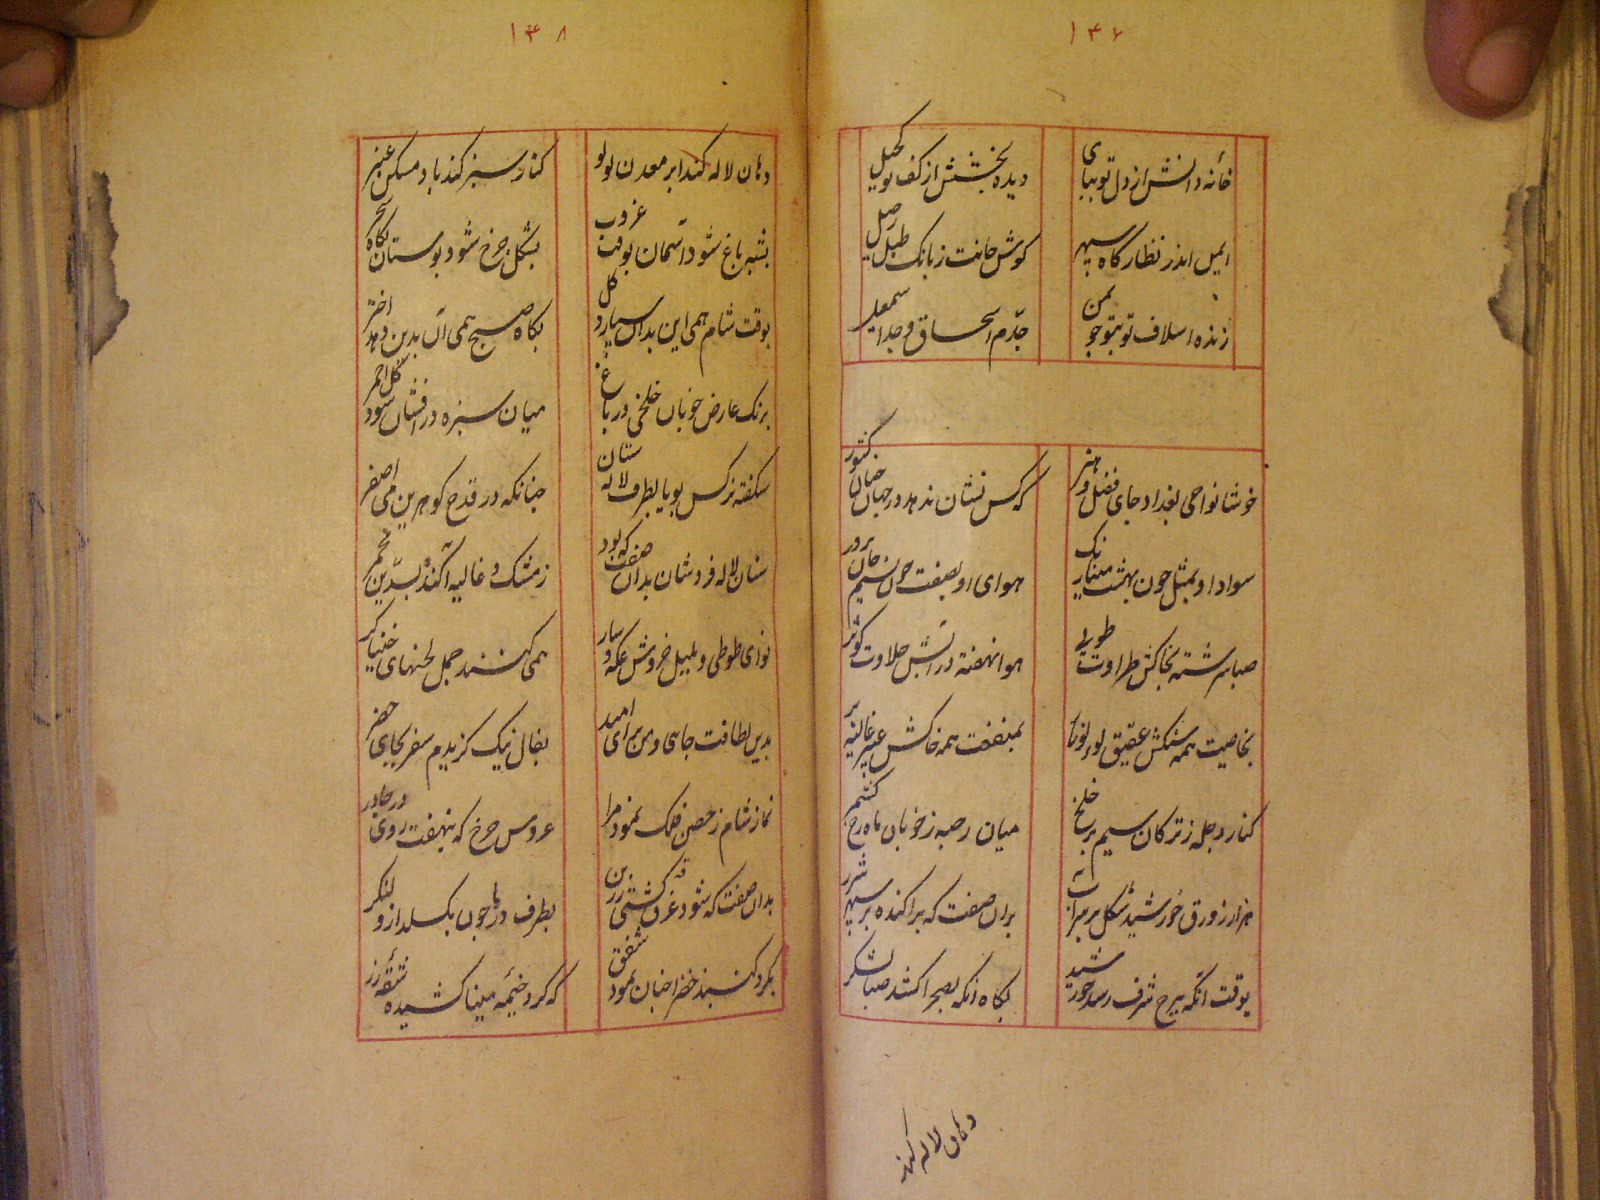 ۱۴۷
خانه دانش از دل تو بپای
دیده بخشش از کف تو کحیل
ایمن اندر نظارگاه سپهر
گوش جانت ز بانگ طبل رحیل
زنده اسلاف تو بتو چو بمن
جدّم اسحاق و جد اسمعیل
خوشا نواحی بغداد جای فضل و هنر
که کس نشان ندهد در جهان چنان کشور
سواد او بمثل چون بهشت مینارنک
هوای او بصفت چون نسیم جان پرور
صبا سرشته بخاکش طراوت طوبی
هوا نهفته در آبش حلاوت کوثر
بخاصیت همه سنکش عقیق لولو بر
بمنفعت همه خاکش عبیر غالیه بر
کنار دجله ز ترکان سیم بر خلخ
میان رحبه ز خوبان ماه رخ کشمر
هزار زورق خورشید شکل بر سر آب
بران صفت که پراکنده بر سپهر شرر
بوقت آنکه ببرج شرف رسد خورشید
بکاه آنکه بصحرا کشد صبا لشکر
دهان لاله کند
۱۴۸
دهان لاله کند ابر معدن لولو
کنار سبزه کند باد مسکن عنبر
بشبه باغ شود آسمان بوقت غروب
بشکل چرخ شود بوستان بکاه سحر
بوقت شام همی این بدان سپارد کل
بکاه صبح همی آن بدین دهد اختر
برنک عارض خوبان خلخی در باغ
میان سبزه درافشان شود کل احمر
شکفته نرکس بویا بطرف لاله ستان
چنانکه در قدح کوهرین می اصفر
ستان لاله فروشان بدان صفت که بود
ز مشک و غالیه آکنده بسدین مجمر
نوای طوطی و بلبل خروش عکه و سار
همی کنند خجل لحنهای خنیاکر
بدین لطافت جایی و من برای امید
بفال نیک کزیدم سفر بجای حضر
نماز شام ز صحن فلک نمود مرا
عروس چرخ که بنهفت روی در چادر
بدان صفت که شود غرقه کشتی زرین
بطرف دریا چون بکسلد ازو لنکر
بکرد کنبد خضرا چنان نمود شفق
که کرد خیمه مینا کشیده شقه زر